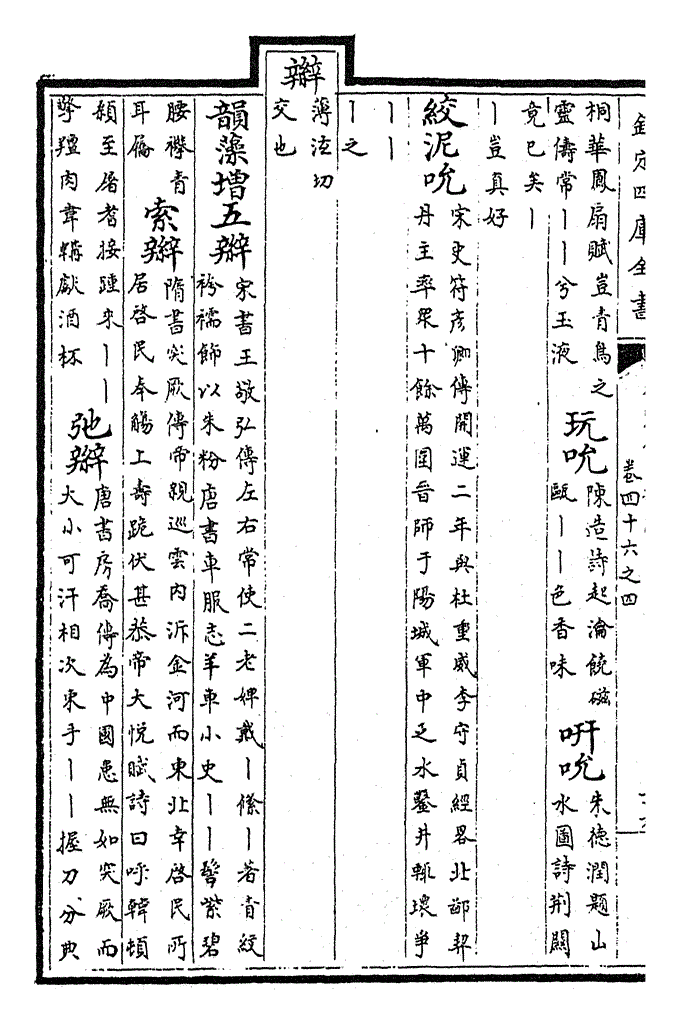 欽定四庫全書
卷四十六之四
桐華鳳扇賦豈青鳥之
靈儔常丨丨兮玉液
玩吮
陳造詩起瀹饒磁
甌丨丨色香味
呀吮
朱德潤題山
水圖詩荆關
竟已矣丨
丨豈真好
絞泥吮
宋史符彦卿傳開運二年與杜重威李守貞經畧北鄙契
丹主率衆十餘萬圍晉師于陽城軍中乏水鑿井輒壞爭
丨丨
丨之
辮
薄泫切
交也
韻藻增五辮
宋書王敬弘傳左右常使二老婢戴丨絛丨著青紋
袴襦飾以朱粉唐書車服志羊車小史丨丨髻紫碧
腰襻青
耳屩
索辮
隋書突厥傳帝親巡雲内泝金河而東北幸啓民所
居啓民奉觴上壽跪伏甚恭帝大悦賦詩曰呼韓頓
顙至屠耆接踵來丨丨
擎羶肉韋韝獻酒杯
弛辮
唐書房喬傳為中國患無如突厥而
大小可汗相次束手丨丨握刀分典